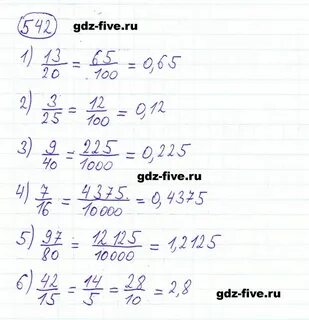 542 gdz-five.ru
1) 13/20 = 65/100 = 0,65
2) 3/25 = 12/100 = 0,12
gdz-five.ru
3) 9/40 = 225/1000 = 0,225
gdz-five.ru
4) 7/16 = 4375/10000 = 0,4375
5) 97/80 = 12125/10000 = 1,2125
6) 42/15 = 14/5 = 28/10 = 2,8
gdz-five.ru